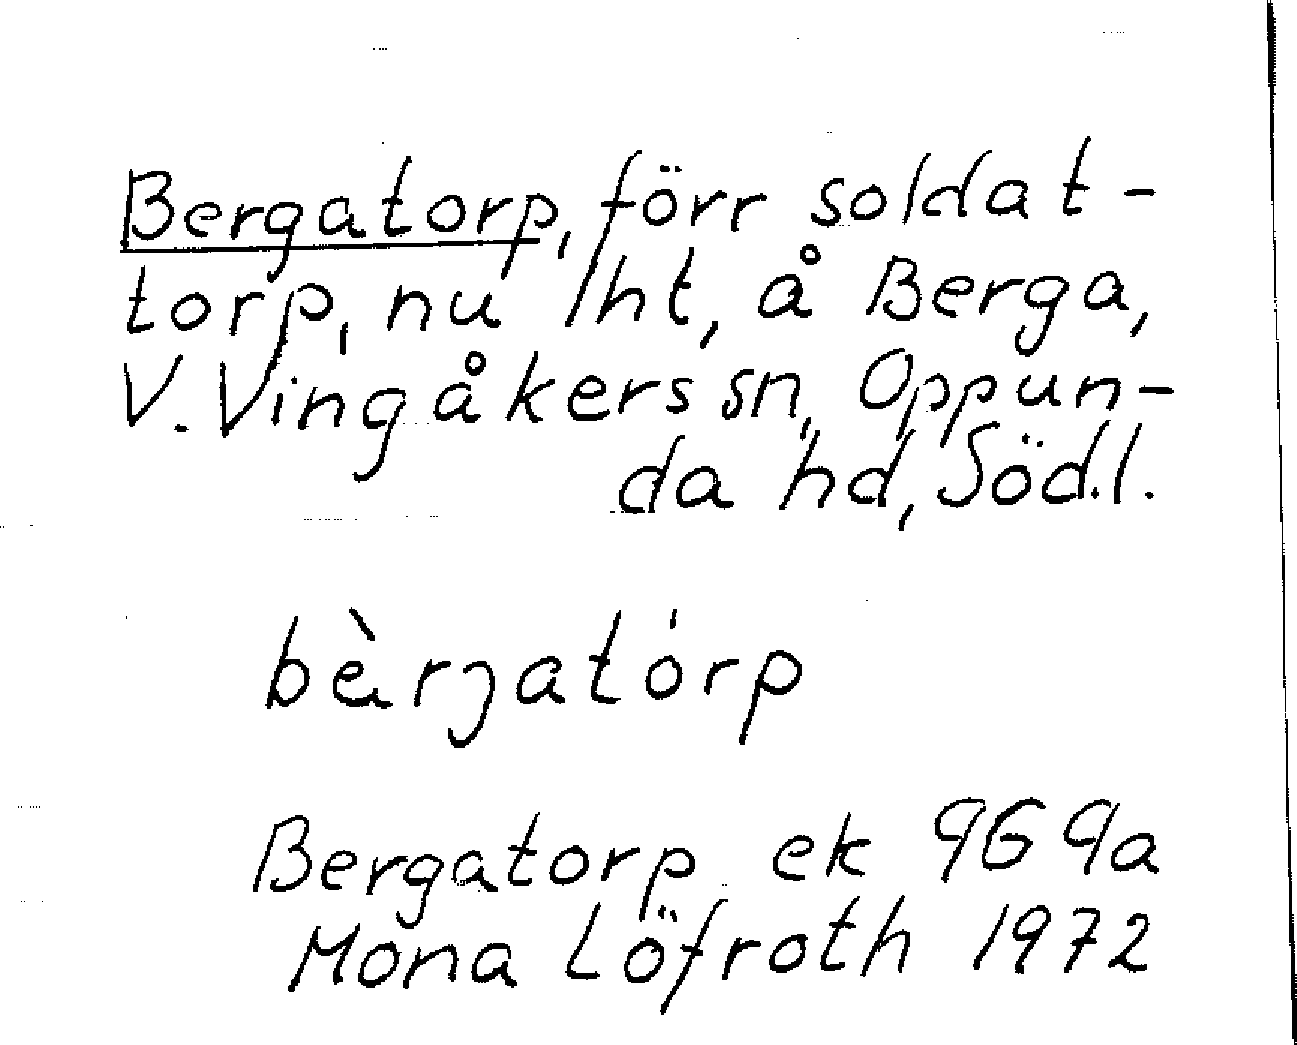 Bergatorp, förr soldat-
torp, nu lht, å Berga,
V. Vingåkers sn, Oppun-
da hd, Söd.l.
bærjatórp
Bergatorp ek 9G 9a
Mona Löfroth 1972